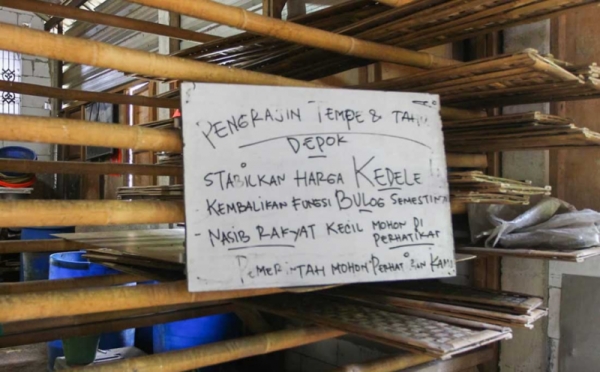 PENGRAJIN TEMPE & TAHU
DEPOK
STABILKAN HARGA KEDELE
- KEMBALIKAN FUNGSI BULOG SEMESTINYA
- NASIB RAKYAT KECIL MOHON DI
PERHATIKAN
PEMERINTAH MOHON PERHATIKAN KAMI